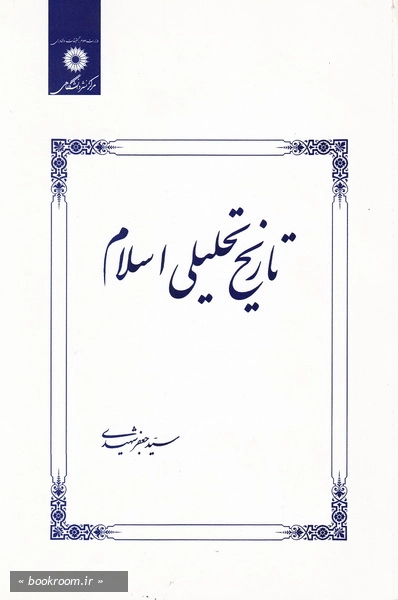 وزارت علوم، تحقیقات و فناوری
مرکز نشر دانشگاهی
تاریخ تحلیلی اسلام
سید جعفر شهیدی
« bookroom.ir »